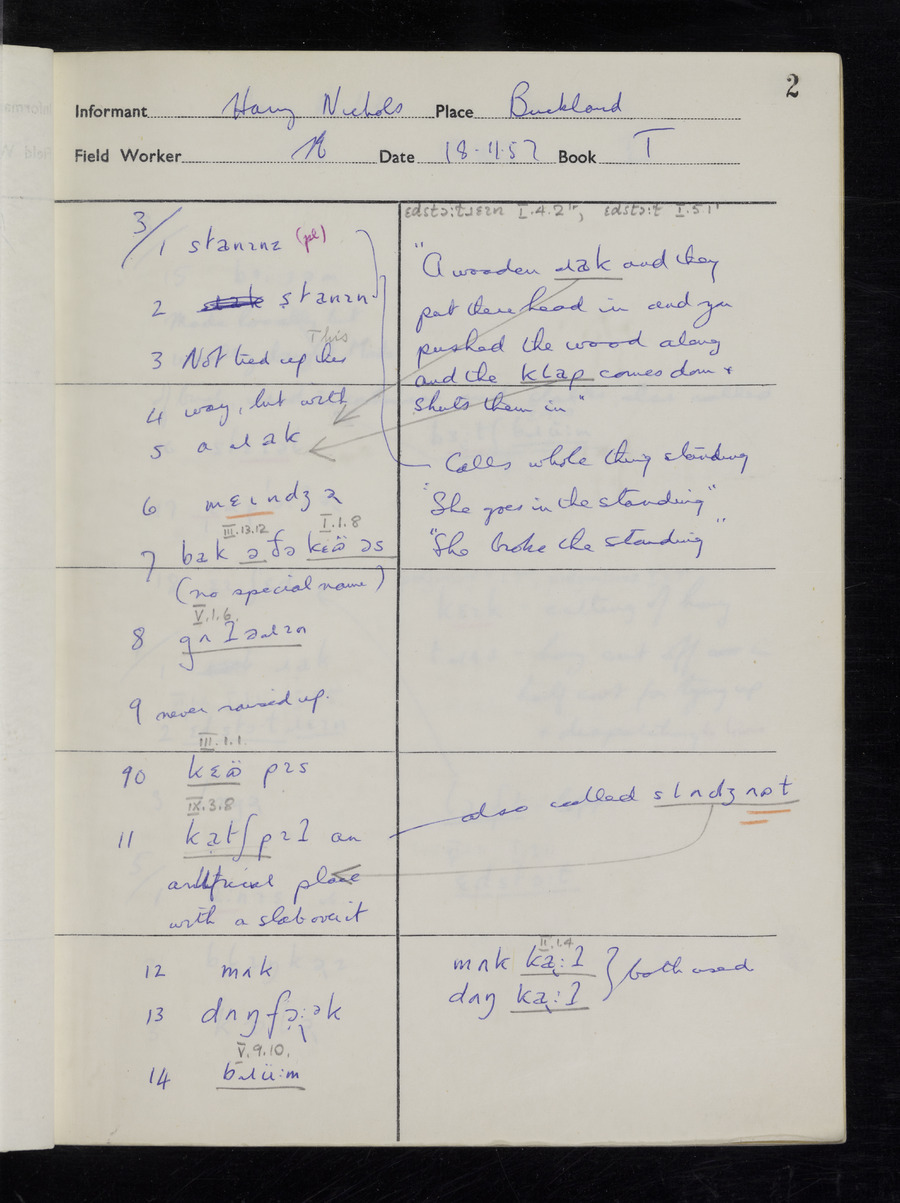 2
Informant Harry Nichols Place Buckland
Field Worker Date 18.11.57 Book I
ɛdstɔ:t I.5.1
3/
1 stanɪnz (pl)
2 stanɪn
This
3 Not tied up this
4 way, but with
5 a ɹak
6 mɛɩndʒə
III.13.12 I.1.8
7 bak ə fə kɛɷ̈ əs
(no special name)
V.1.6
8
9 never raised up.
III.1.1.
90 kɛɷ̈ pɪs
IX.3.8
11 katʃpɪl an
artificial place
with a slab over it
12 mʌk
13 dʌŋ fɔ:ək
V.9.10.
14 bɹü:m
"A wooden ɹak and they
put there head in and you
pushed the wood along
and the klap comes down +
shuts them in"
Calls whole thing standing
"She goes in the standing"
"She broke the standing"
also called slʌdʒ
II.1.4
mʌk ka:l } both used
dʌŋ ka:l